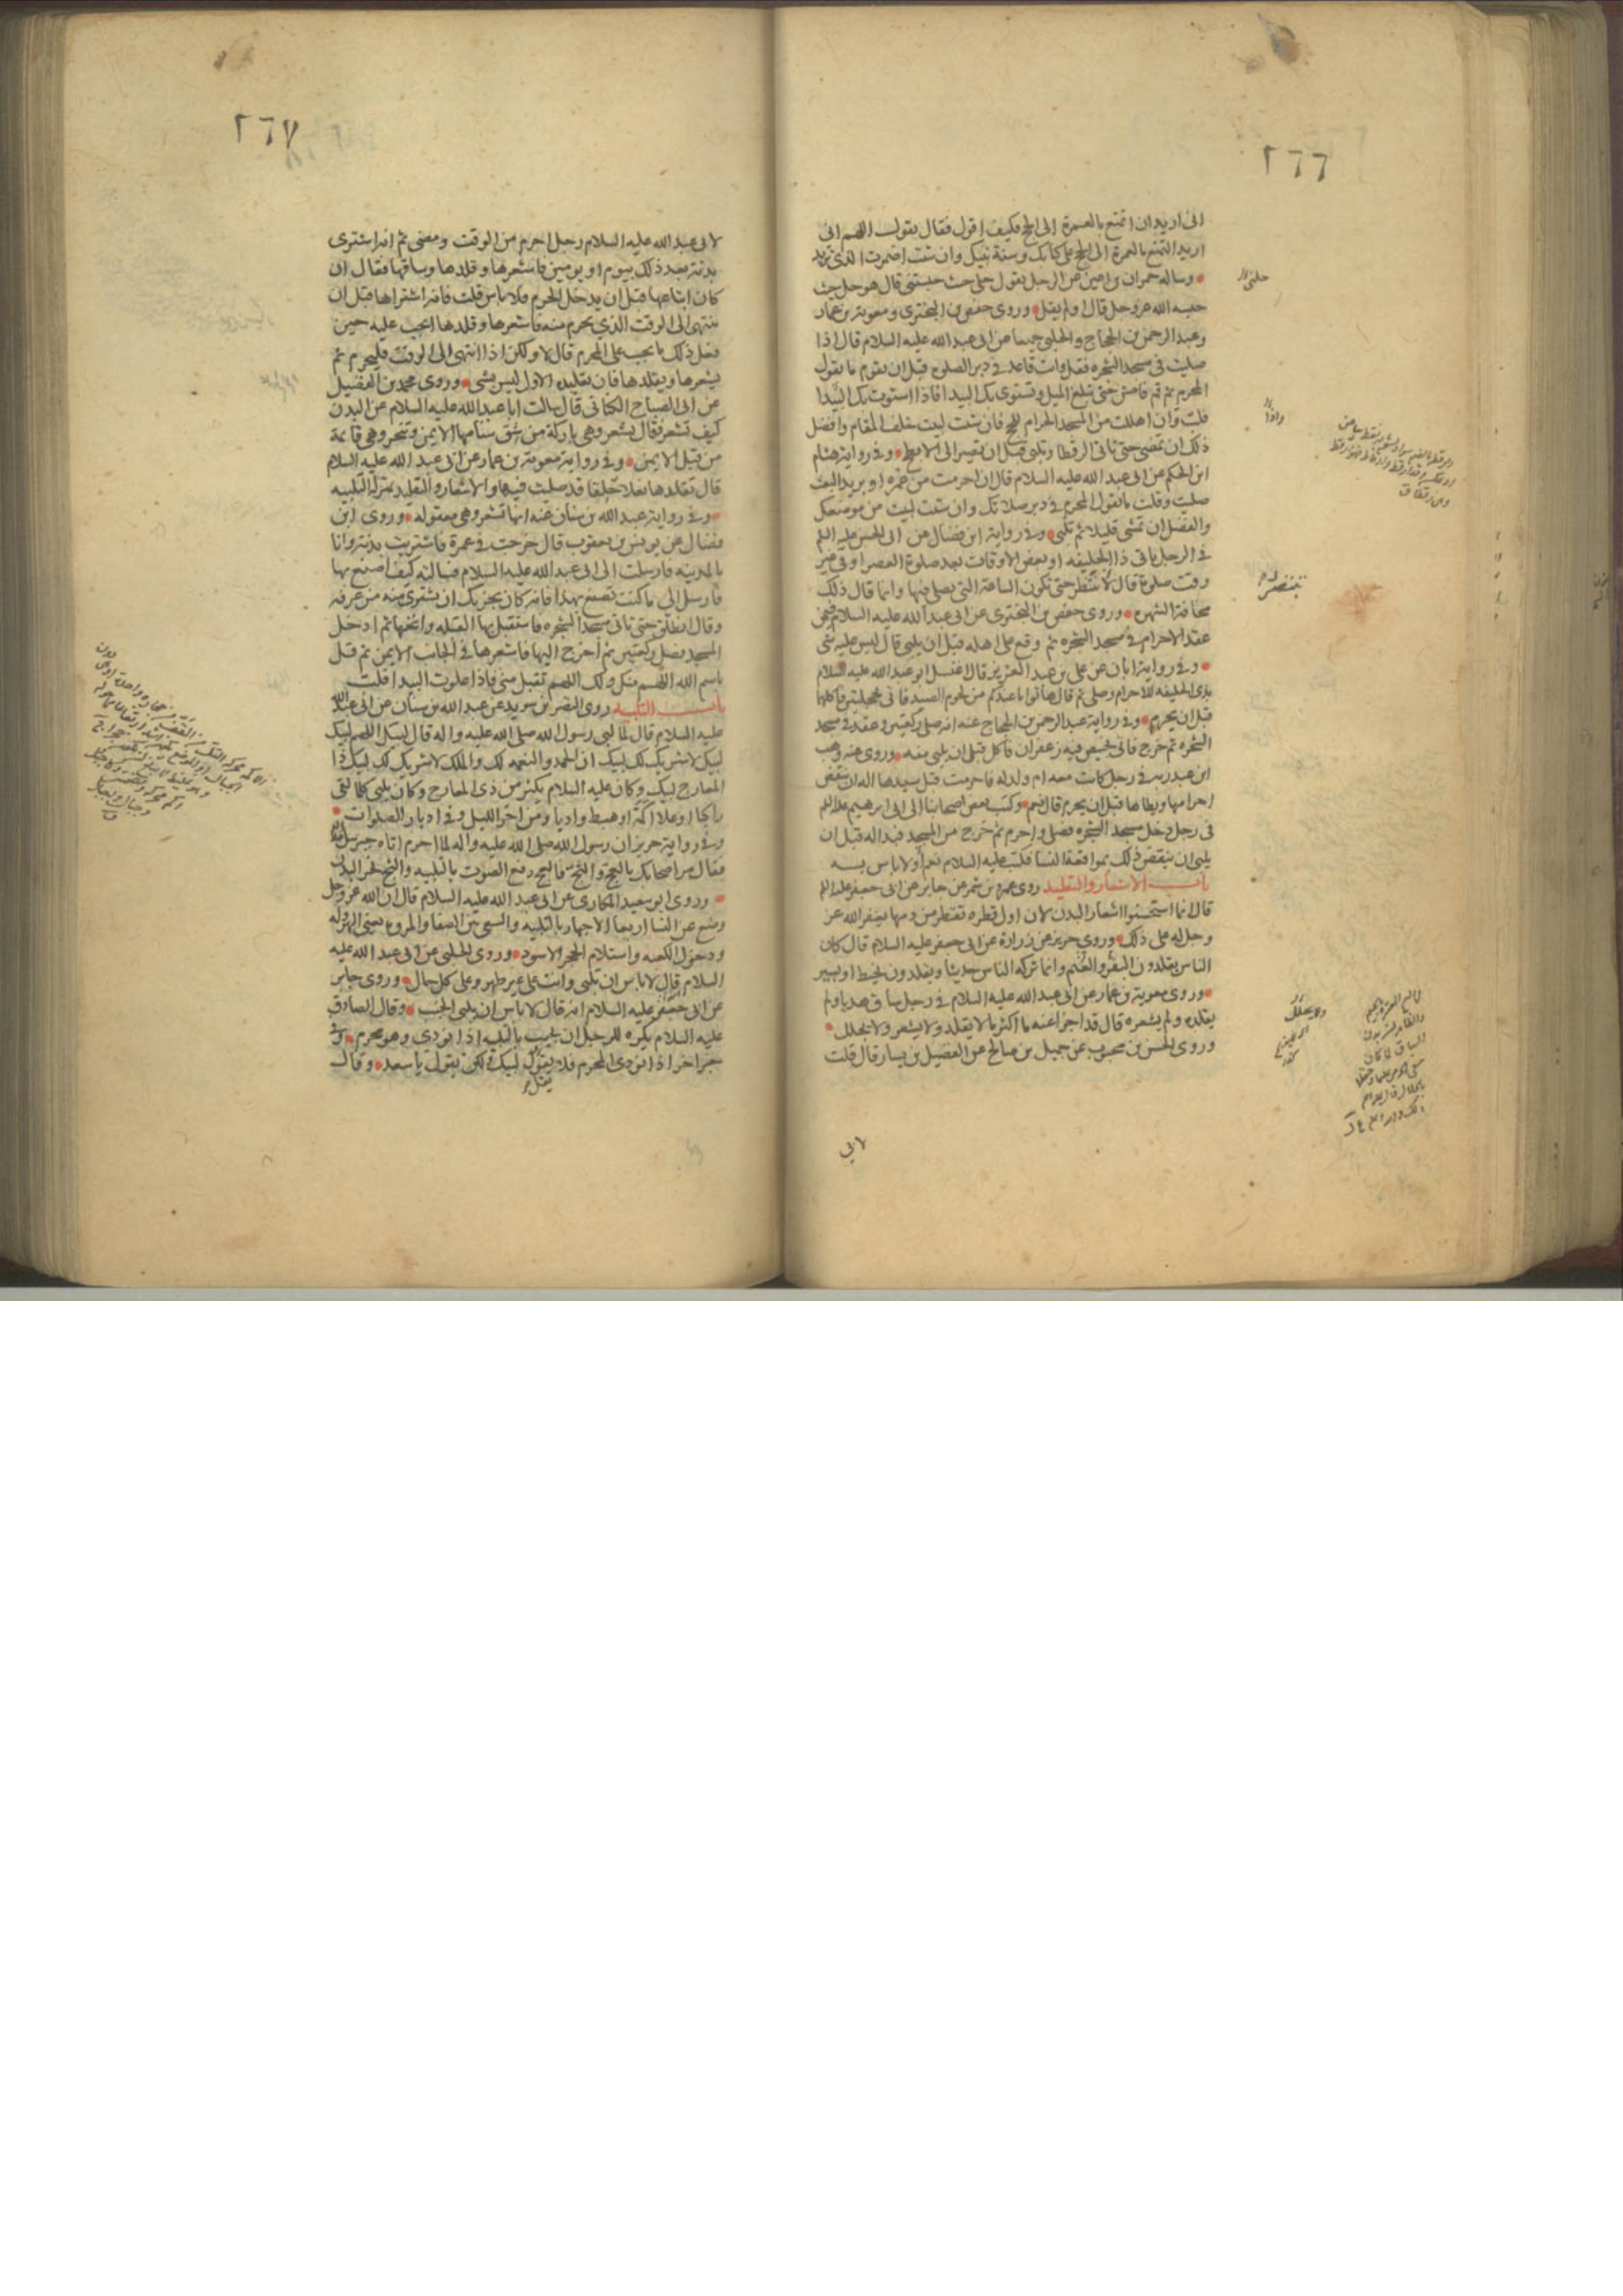 ٢٦٦
انى اريد ان اتمتع بالعمرة الى الحج فكيف اقول فقال تقول اللهم انى
اريد التمتع بالعمرة الى الحج على كتابك وسنة نبيك وان شئت اضمرت الذى تريد
وساله حمران بن اعين عن الرجل يقول حلنى حيث حبستنى قال هو حل حيث
حبسه الله عز وجل قال او لم يقل وروى حفص بن البخترى ومعوية بن عمار
وعبد الرحمن بن الحجاج والحلبى جميعا عن ابى عبد الله عليه السلام قال اذا
صليت فى مسجد الشجره فقل وانت قاعد فى دبر الصلوة قبل ان تقوم ما يقول
المحرم ثم قم فامش حتى تبلغ الميل وتستوى بك البيدا فاذا استوت بك البيدا
فلب وان اهللت من المسجد الحرام للحج فان شئت لبيت خلف المقام وافضل
ذلك ان تمضى حتى تاتى الرقطا وتلبى قبل ان تصير الى الابطح وفى رواية هشام
ابن الحكم عن ابى عبد الله عليه السلام قال ان احرمت من غمره او بريد البعث
صليت وقلت ما يقول المحرم فى دبر صلاتك وان شئت لبيت من موضعك
والفضل ان تمشى قليلا ثم تلبى وفى رواية ابن فضال عن ابى الحسن عليه السلم
فى الرجل ياتى ذا الحليفه او بعض الاوقات بعد صلوة العصر او فى غير
وقت صلوة قال لا ينتظر حتى تكون الساعة التى يصلى فيها وانما قال ذلك
مخافة الشهره وروى حفص بن البخترى عن ابى عبد الله عليه السلام فيمن
عقد الاحرام فى مسجد الشجره ثم وقع على اهله قبل ان يلبى قال ليس عليه شى
وفى رواية ابان عن على بن عبد العزيز قال اغتسل ابو عبد الله عليه السلام
بذى الحليفه للاحرام وصلى ثم قال هاتوا ما عندكم من لحوم الصيد فاتى بحجلتين فاكلهما
قبل ان يحرم وفى رواية عبد الرحمن بن الحجاج عنه انه صلى ركعتين وعقد فى مسجد
الشجره ثم خرج فاتى بخبيص فيه زعفران فاكل قبل ان يلبى منه وروى عنه وهب
ابن عبد ربه فى رجل كانت معه ام ولد له فاحرمت قبل سيدها اله ان ينقض
احرامها ويطاها قبل ان يحرم قال نعم وكتب بعض اصحابنا الى ابى ابرهيم عليه السلم
فى رجل دخل مسجد الشجره فصلى واحرم ثم خرج من المسجد فبدا له قبل ان
يلبى ان ينقض ذلك بمواقعة النسا فكتب عليه السلام نعم او لا باس به
باب الاشعار والتقليد روى عمرو بن شمر عن جابر عن ابى جعفر عليه السلم
قال انما استحسنوا اشعار البدن لان اول قطره تقطر من دمها يغفر الله عز
وجل له على ذلك وروى حريز عن زرارة عن ابى جعفر عليه السلام قال كان
الناس يقلدون البقر والغنم وانما تركه الناس حديثا ويقلدون بخيط او بسير
وروى معوية بن عمار عن ابى عبد الله عليه السلام فى رجل ساق هديا ولم
يقلده ولم يشعره قال قد اجزا عنه ما اكثر ما لا يقلد ولا يشعر ولا يجلل
وروى الحسن بن محبوب عن جميل بن صالح عن الفضيل بن يسار قال قلت
لابى
حلنى
ينتظر
ولا يحلل
٢٦٧
لابى عبد الله عليه السلام رجل احرم من الوقت ومضى ثم انه اشترى
بدنة بعد ذلك بيوم او يومين فاشعرها وقلدها وساقها فقال ان
كان ابتاعها قبل ان يدخل الحرم فلا باس قلت فانه اشتراها قبل ان
ينتهى الى الوقت الذى يحرم منه فاشعرها وقلدها ايجب عليه حين
فعل ذلك ما يجب على المحرم قال لا ولكن اذا انتهى الى الوقت فليحرم ثم
يشعرها ويقلدها فان تقليده الاول ليس بشى وروى محمد بن الفضيل
عن ابى الصباح الكنانى قال سالت ابا عبد الله عليه السلام عن البدن
كيف تشعر فقال تشعر وهى باركة من شق سنامها الايمن وتنحر وهى قايمة
من قبل الايمن وفى رواية معوية بن عمار عن ابى عبد الله عليه السلام
قال تقلدها نعلا خلقا قد صليت فيها والاشعار والتقليد بمنزلة التلبيه
وفى رواية عبد الله بن سنان عنه انها تشعر وهى معقوله وروى ابن
فضال عن يونس بن يعقوب قال خرجت فى عمرة فاشتريت بدنة وانا
بالمدينه فارسلت الى ابى عبد الله عليه السلام فسالته كيف اصنع بها
فارسل الى ما كنت تصنع بهذا فانه كان يجزيك ان تشترى منه من عرفه
وقال انطلق حتى تاتى مسجد الشجره فاستقبل بها القبله وانخها ثم ادخل
المسجد فصل ركعتين ثم اخرج اليها فاشعرها فى الجانب الايمن ثم قل
باسم الله اللهم منك ولك اللهم تقبل منى فاذا علوت البيدا فلب
باب التلبيه روى النضر بن سويد عن عبد الله بن سنان عن ابى عبد الله
عليه السلام قال لما لبى رسول الله صلى الله عليه واله قال لبيك اللهم لبيك
لبيك لا شريك لك لبيك ان الحمد والنعمه لك والملك لا شريك لك لبيك ذا
المعارج لبيك وكان عليه السلام يكثر من ذى المعارج وكان يلبى كلما لقى
راكبا او علا اكمة او هبط واديا ومن اخر الليل وفى ادبار الصلوات
وفى رواية حريز ان رسول الله صلى الله عليه واله لما احرم اتاه جبرئيل
فقال مر اصحابك بالعج والثج فالعج رفع الصوت بالتلبيه والثج نحر البدن
وروى ابو سعيد المكارى عن ابى عبد الله عليه السلام قال ان الله عز وجل
وضع عن النسا اربعا الاجهار بالتلبيه والسعى بين الصفا والمروة يعنى الهروله
ودخول الكعبه واستلام الحجر الاسود وروى الحلبى عن ابى عبد الله عليه
السلام قال لا باس ان تلبى وانت على غير طهر وعلى كل حال وروى جابر
عن ابى جعفر عليه السلام انه قال لا باس ان يلبى الجنب وقال الصادق
عليه السلام يكره للرجل ان يجيب بالتلبيه اذا نودى وهو محرم وفى
خبر اخر اذا نودى المحرم فلا يقول لبيك ولكن يقول يا سعد وقال
يقل